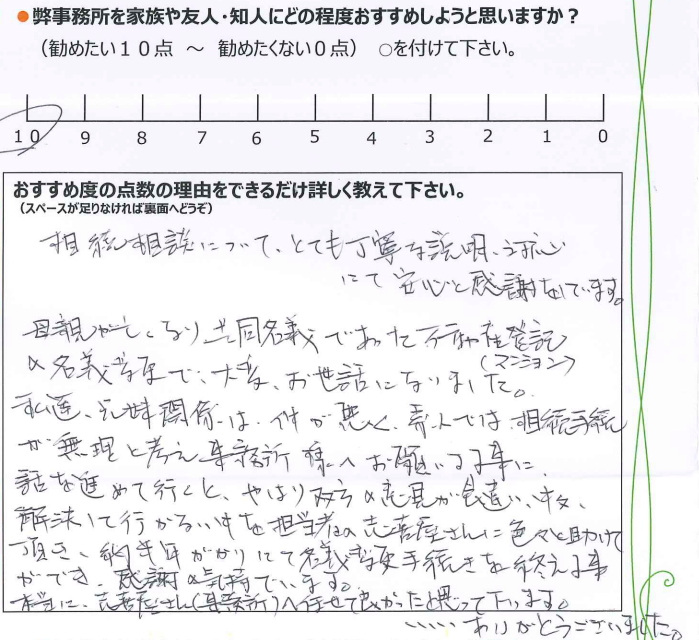 ●弊事務所を家族や友人・知人にどの程度おすすめしようと思いますか？
（勧めたい１０点 ～ 勧めたくない０点） ○を付けて下さい。
10 9 8 7 6 5 4 3 2 1 0
おすすめ度の点数の理由をできるだけ詳しく教えて下さい。
（スペースが足りなければ裏面へどうぞ）
相続相談について、とても丁寧な説明、対応
にて安心と感謝をしています。
母親が亡くなり共同名義であった不動産登記
（マンション）
の名義変更で、大変、お世話になりました。
私達、兄妹関係は、仲が悪く、素人では相続手続
が無理と考え事務所様へお願いする事に、
話を進めて行くと、やはり双方の意見が食違い、中々、
解決して行かない中を担当者の志喜屋さんに色々と助けて
頂き、約半年がかりにて名義変更手続きを終える事
ができ、感謝の気持でいます。
本当に、志喜屋さん(事務所)へ任せて良かったと思って下います。
……ありがとうございました。